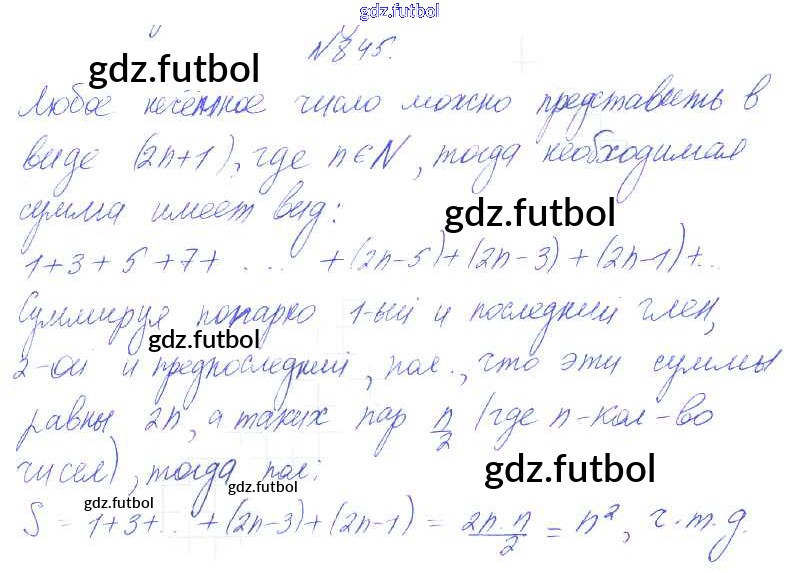 gdz.futbol
№845.
gdz.futbol
Любое нечётное число можно представить в
виде (2n+1), где n∈N, тогда необходимая
сумма имеет вид: gdz.futbol
1+3+5+7+ .... +(2n-5)+(2n-3)+(2n-1)+..
Суммируя попарно 1-ый и последний член,
gdz.futbol
2-ой и предпоследний, пол., что эти суммы
равны 2n, а таких пар n/2 (где n-кол-во
чисел), тогда пол: gdz.futbol
gdz.futbol gdz.futbol
S = 1+3+.. +(2n-3)+(2n-1) = 2n·n/2 = n², ч.т.д.